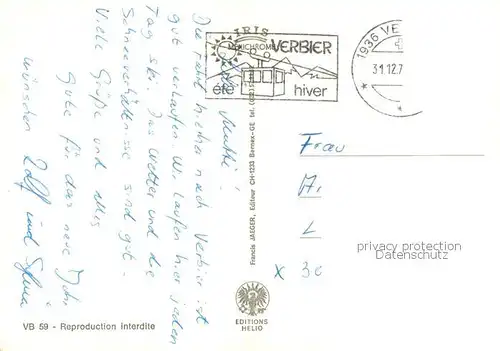 Liebe Mutti!
Die Fahrt hierher nach Verbier ist
gut verlaufen. Wir laufen hier jeden
Tag Ski. Das Wetter und die
Schneeverhältnisse sind gut.
Viele Grüße und alles
Gute für das neue Jahr
wünschen Rolf und Sylvia
IRIS
MEXICHROME
VERBIER
été hiver
1936 VE
31.12.7
Frau
A.
L
X 3c
privacy protection
Datenschutz
Francis JAEGER, Editeur CH-1233 Bernex-GE tel. (022)
EDITIONS
HELIO
VB 59 - Reproduction interdite